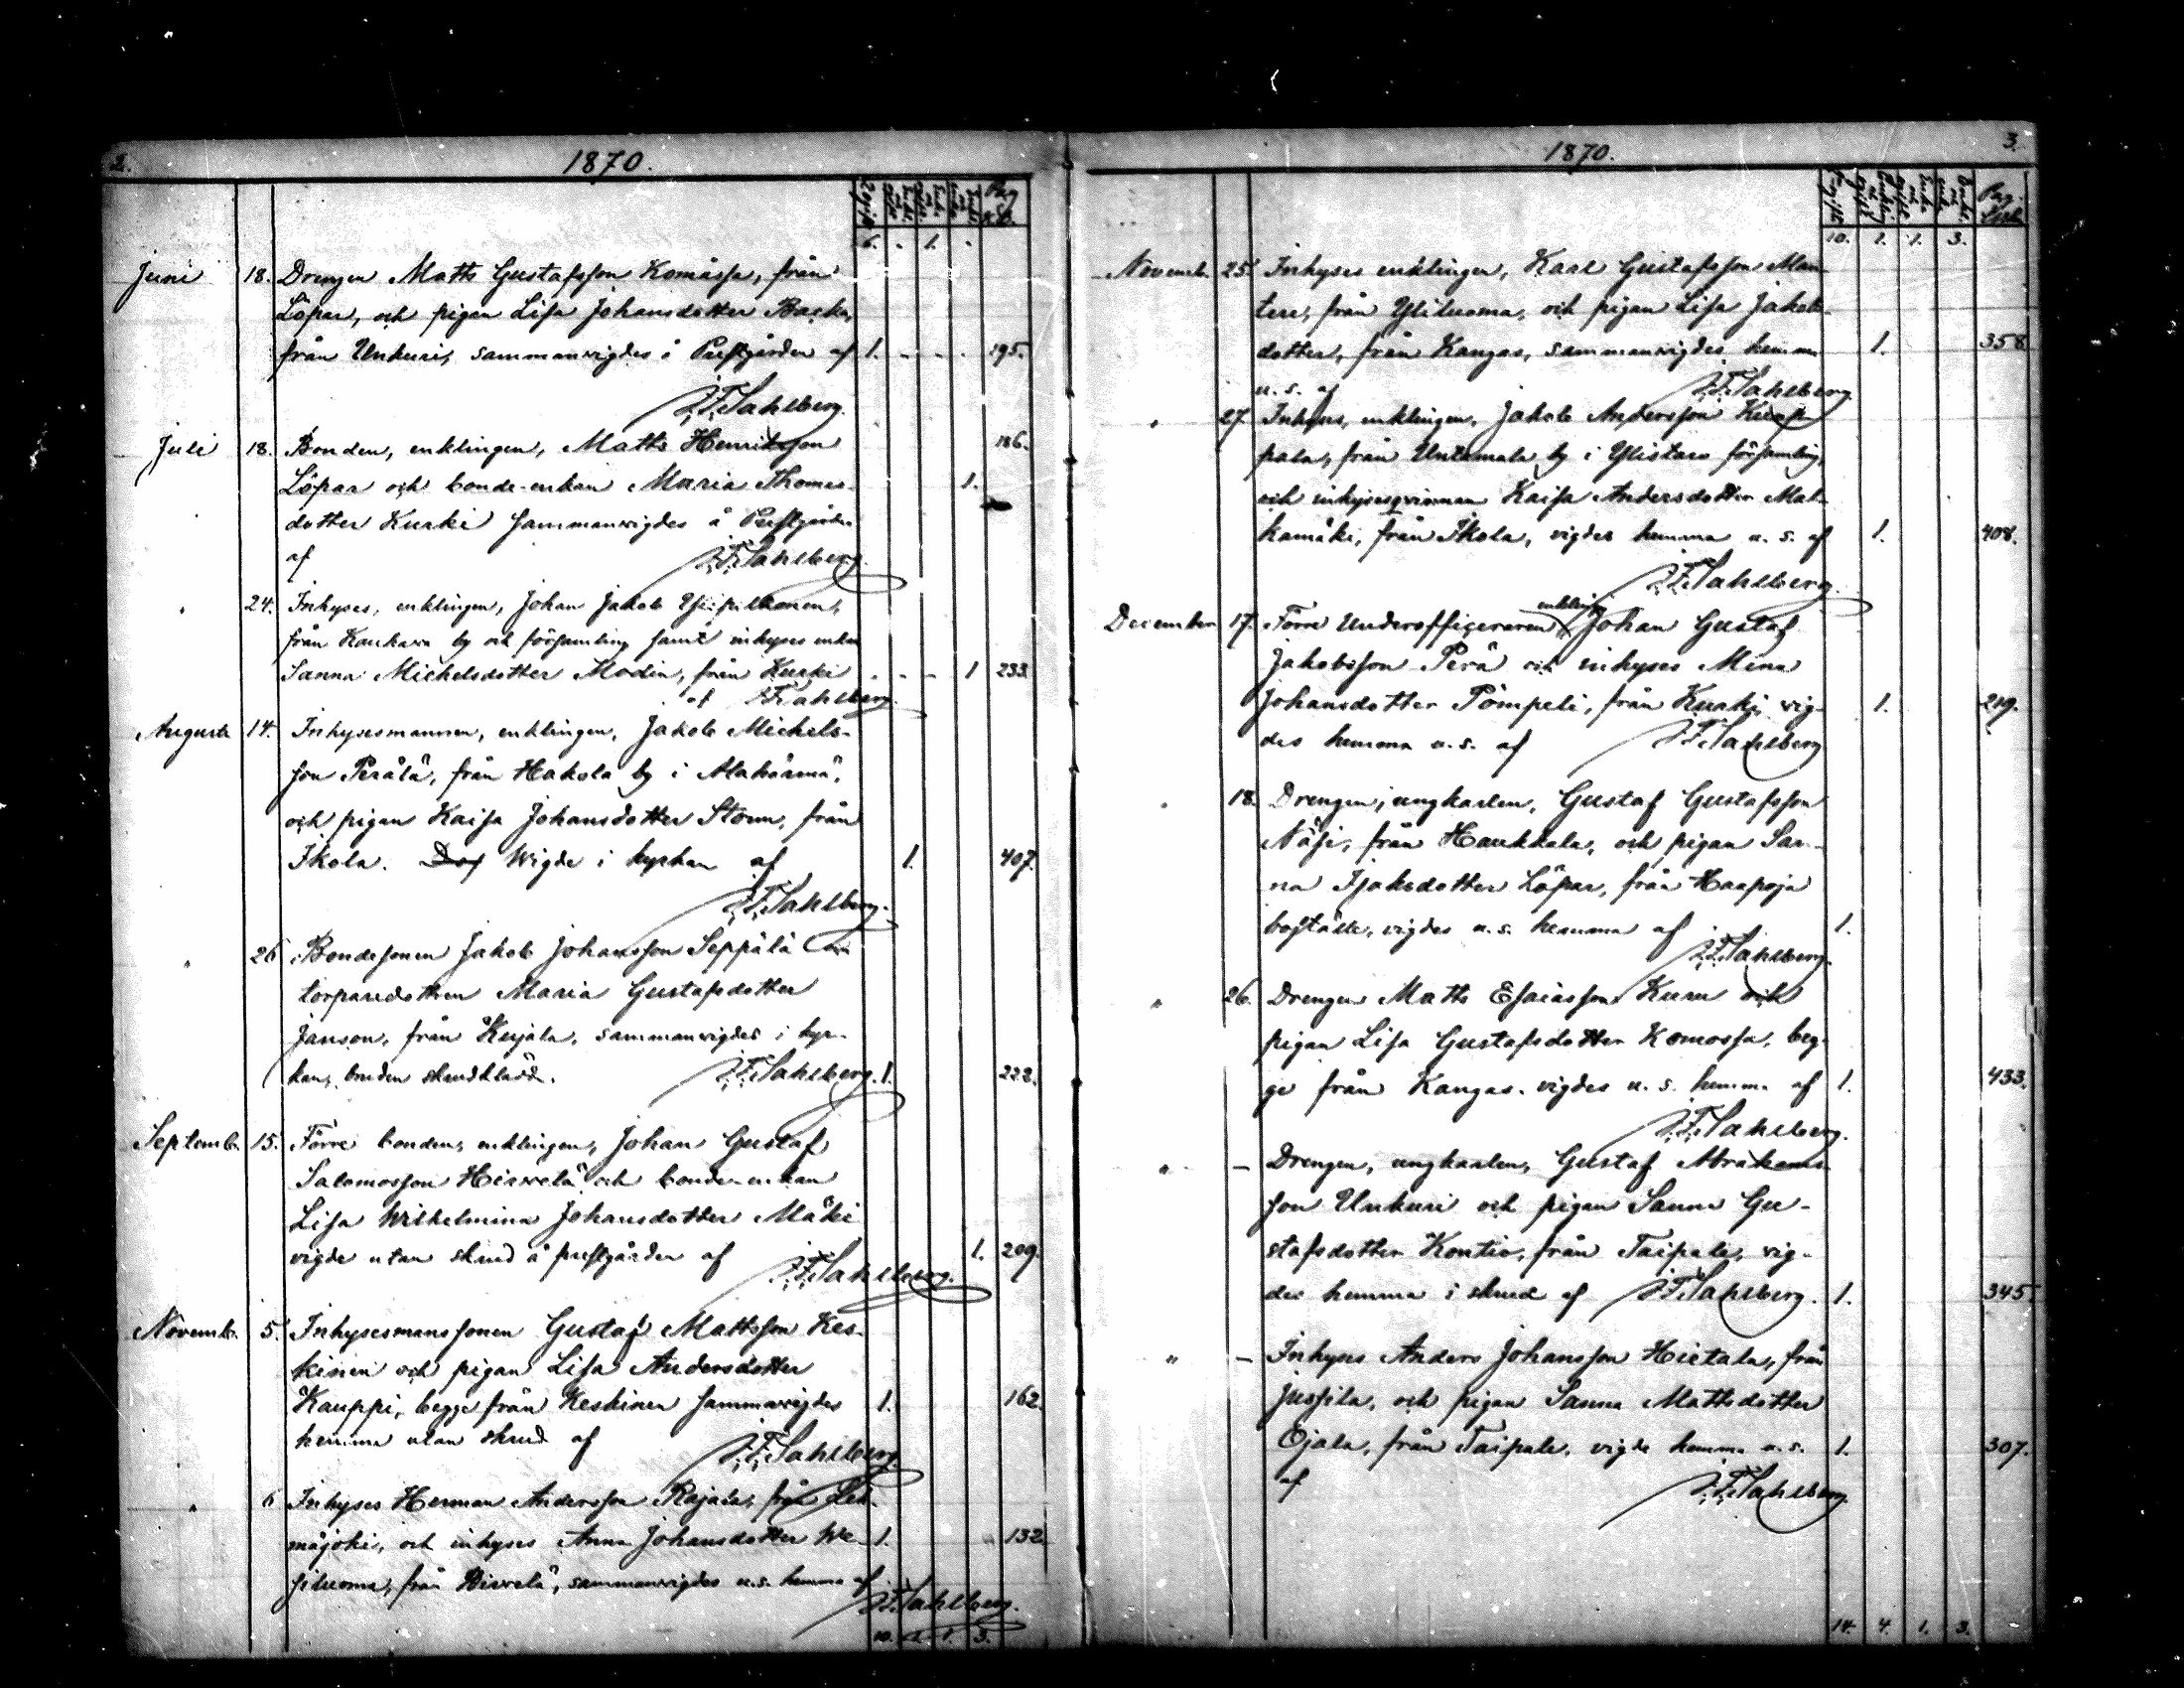 2.
1870.
Pag
6. . 1. .
Juni 18. Drengen Matts Gustafsson Komåssa, från
Löpar, och pigan Lisa Johansdotter Backa,
från Unkuri, sammanvigdes å Prestgården af 1. 195.
J. F. Sahlberg.
Juli 18. Bonden, enklingen, Matts Henriksson 186.
Löpar och bonde-enkan Maria Thomas- 1.
dotter Kurki sammanvigdes å Prestgården
af J. F. Sahlberg.
" 24. Inhyses, enklingen, Johan Jakob
från Kauhava by och församling samt inhyses enkan
Sanna Michelsdotter Modin, från Kurki 1 233
af J. F. Sahlberg
Augusti 14. Inhysesmannen, enklingen, Jakob Michels-
son Perälä, från Hakola by i Alahärmä,
och pigan Kaisa Johansdotter Storm, från
Ikola. Wigde i kyrkan af 1. 407.
J. F. Sahlberg.
" 26 Bondesonen Jakob Johansson Seppälä och
torparedottren Maria Gustafsdotter
Janson, från Kujala, sammanvigdes i kyr-
kan, bruden skrudklädd. J. F. Sahlberg. 1. 222.
Septemb. 15. Förre bonden, enklingen, Johan Gustaf
Salomosson Hirvelä och bonde-enkan
Lisa Wilhelmina Johansdotter Mäki
vigde utan skrud å prestgården af 1. 209.
J. F. Sahlberg.
Novemb. 5. Inhysesmanssonen Gustaf Mattsson Kes-
kinen och pigan Lisa Andersdotter
Kauppi, begge från Keskinen sammanvigdes 1. 162.
hemma utan skrud af J. F. Sahlberg
" 6 Inhyses Herman Andersson Rajala, från Leh-
mäjoki, och inhyses Anna Johansdotter We- 1. 132
siluoma, från Hirvelä, sammanvigdes u.s. hemma af
J. F. Sahlberg.
10. 1. 1. 3.
1870. 3.
Pag.
10. 1. 1. 3.
Novemb. 25. Inhyses enklingen, Karl Gustafsson Man-
tere, från Yliluoma, och pigan Lisa Jakobs-
dotter, från Kangas, sammanvigdes hemma 1. 358
u. s. af J. F. Sahlberg.
" 27. Inhyses, enklingen, Jakob Andersson
pala, från Untamala by i Ylistaro församling,
och inhysesqvinnan Kaisa Andersdotter Mat-
kamäki, från Ikola, vigdes hemma u. s. af 1. 408.
J. F. Sahlberg.
December 17. Förre Underofficeraren, enkling, Johan Gustaf
Jakobsson Perä och inhyses Mina
Johansdotter Pömpeli, från Kurki, vig- 1. 219.
des hemma u. s. af J. F. Sahlberg
" 18. Drengen, ungkarlen, Gustaf Gustafsson
Näsi, från Haukkala, och pigan San-
na Isaksdotter Löpar, från Haapoja
boställe, vigdes u. s. hemma af 1.
J. F. Sahlberg.
" 26. Drengen Matts Esaiasson Kuru och
pigan Lisa Gustafsdotter Komossa, beg-
ge från Kangas, vigdes u. s. hemma af 1. 433.
J. F. Sahlberg.
" – Drengen, ungkarlen, Gustaf Abrahams-
son Unkuri och pigan Sanna Gu-
stafsdotter Kontio, från Taipale, vig-
des hemma i skrud af J. F. Sahlberg. 1. 345.
" – Inhyses Anders Johansson Hietala, från
Jussila, och pigan Sanna Mattsdotter
Ojala, från Taipale, vigde hemma u. s. 1. 307.
af J. F. Sahlberg
14. 4. 1. 3.